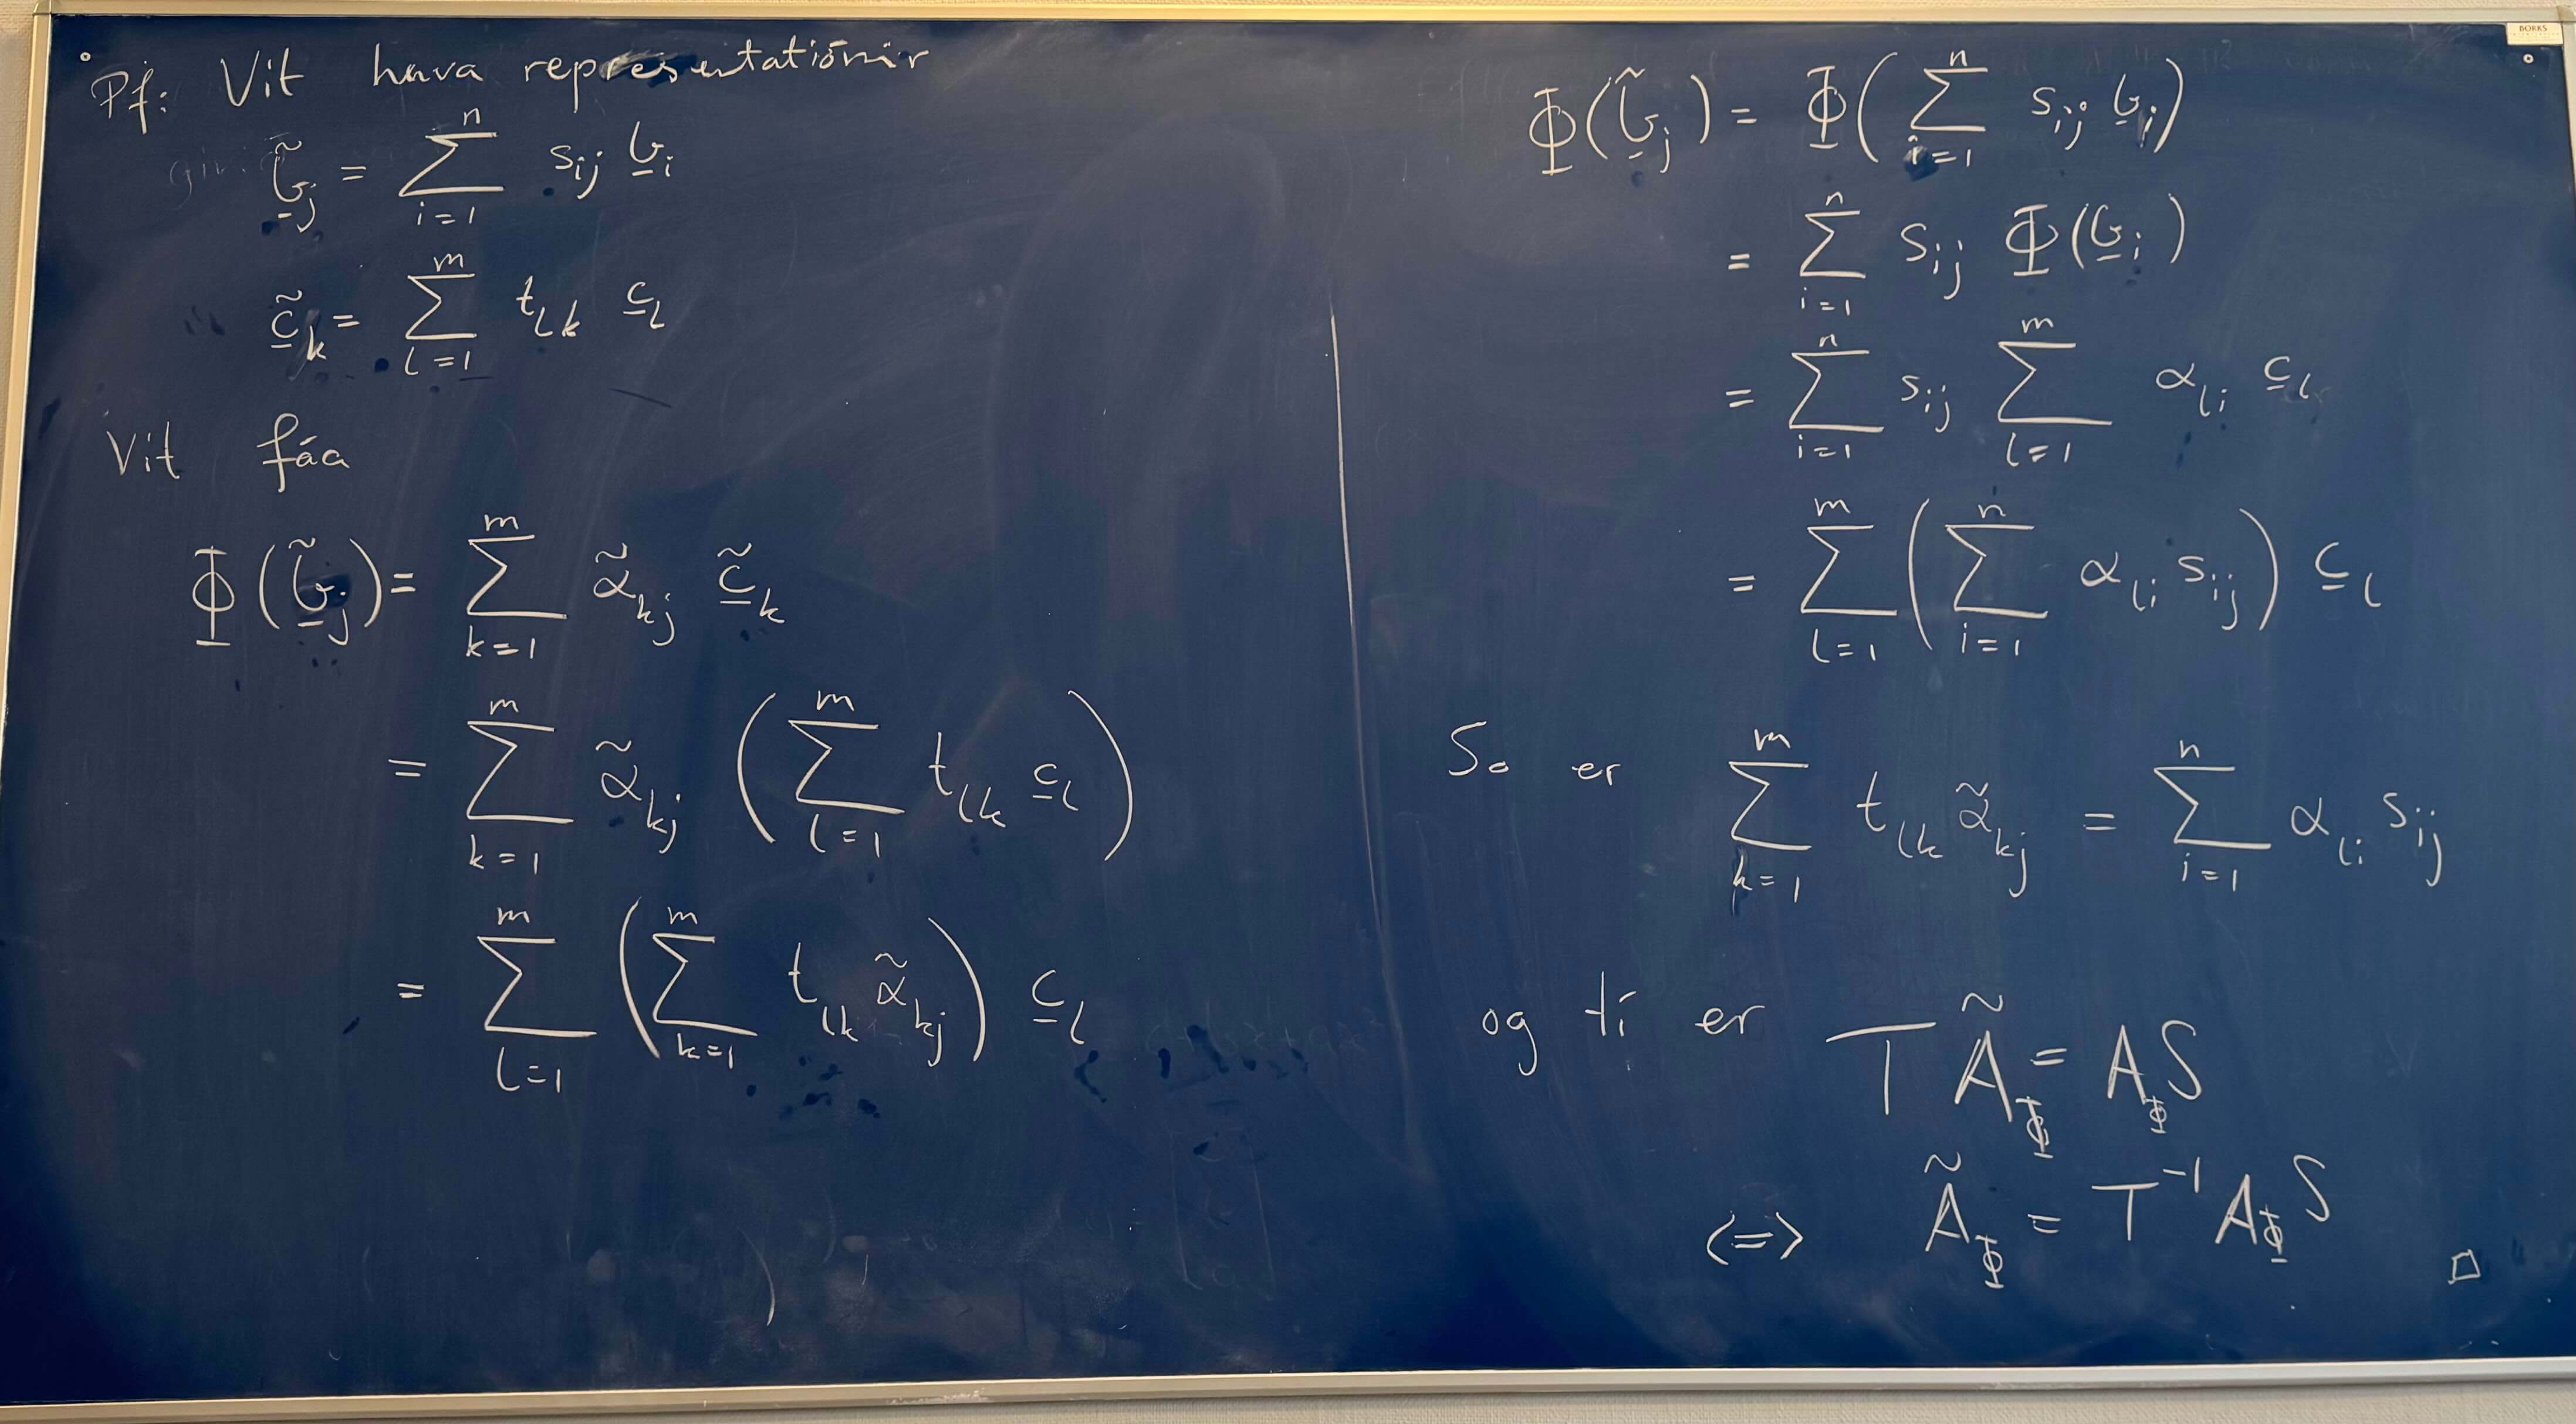 Pf: Vit hava representatiónir
b̲̃_j = ∑_{i=1}^{n} s_{ij} b̲_i
c̲̃_k = ∑_{l=1}^{m} t_{lk} c̲_l
Vit fáa
Φ(b̲̃_j) = ∑_{k=1}^{m} α̃_{kj} c̲̃_k
= ∑_{k=1}^{m} α̃_{kj} (∑_{l=1}^{m} t_{lk} c̲_l)
= ∑_{l=1}^{m} (∑_{k=1}^{m} t_{lk} α̃_{kj}) c̲_l
Φ(b̲̃_j) = Φ(∑_{i=1}^{n} s_{ij} b̲_i)
= ∑_{i=1}^{n} s_{ij} Φ(b̲_i)
= ∑_{i=1}^{n} s_{ij} ∑_{l=1}^{m} α_{li} c̲_l
= ∑_{l=1}^{m} (∑_{i=1}^{n} α_{li} s_{ij}) c̲_l
So er ∑_{k=1}^{m} t_{lk} α̃_{kj} = ∑_{i=1}^{n} α_{li} s_{ij}
og tí er T Ã_Φ = A_Φ S
<=> Ã_Φ = T^{-1} A_Φ S □